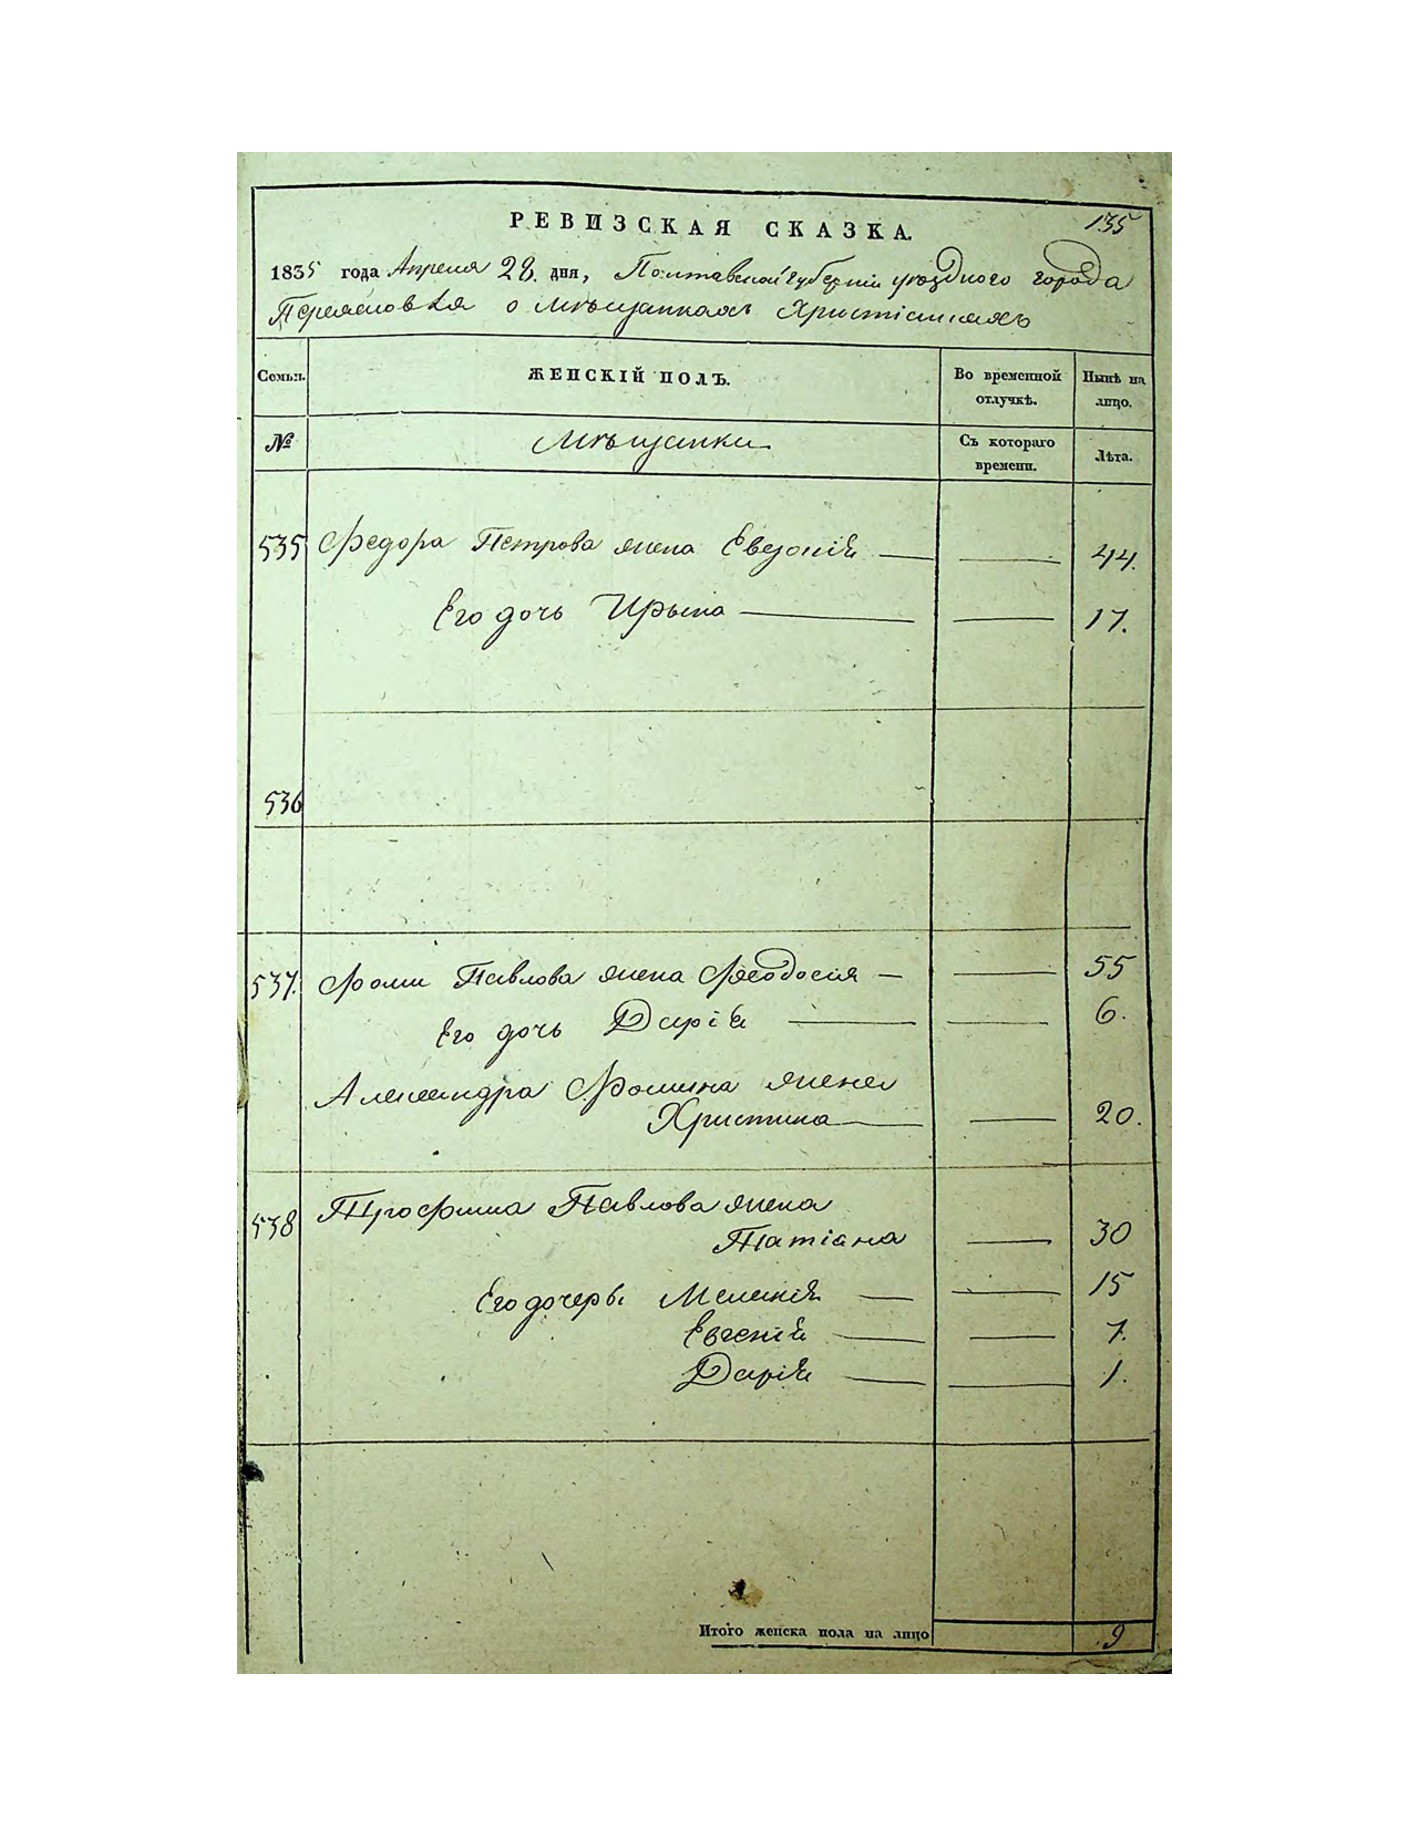 135
РЕВИЗСКАЯ СКАЗКА.
1835 года Апреля 28. дня, Полтавской губерніи уѣзднаго города
Переяслова о мѣщанкахъ Христіянахъ
Семьи. ЖЕНСКІЙ ПОЛЪ. Во временной отлучкѣ. Нынѣ на лицо.
№ Мѣщанки Съ котораго времени. Лѣта.
535 Федора Петрова жена Евдокія — — 44.
Его дочь Ирына — — 17.
536
537. Фомы Павлова жена Феодосія — — 55
Его дочь Дарія — — 6.
Александра Фомина жена
Христина — — 20.
538 Трофима Павлова жена
Татіана — 30
Его дочери Меланія — — 15
Евгенія — — 7.
Дарія — — 1.
Итого женска пола на лицо 9